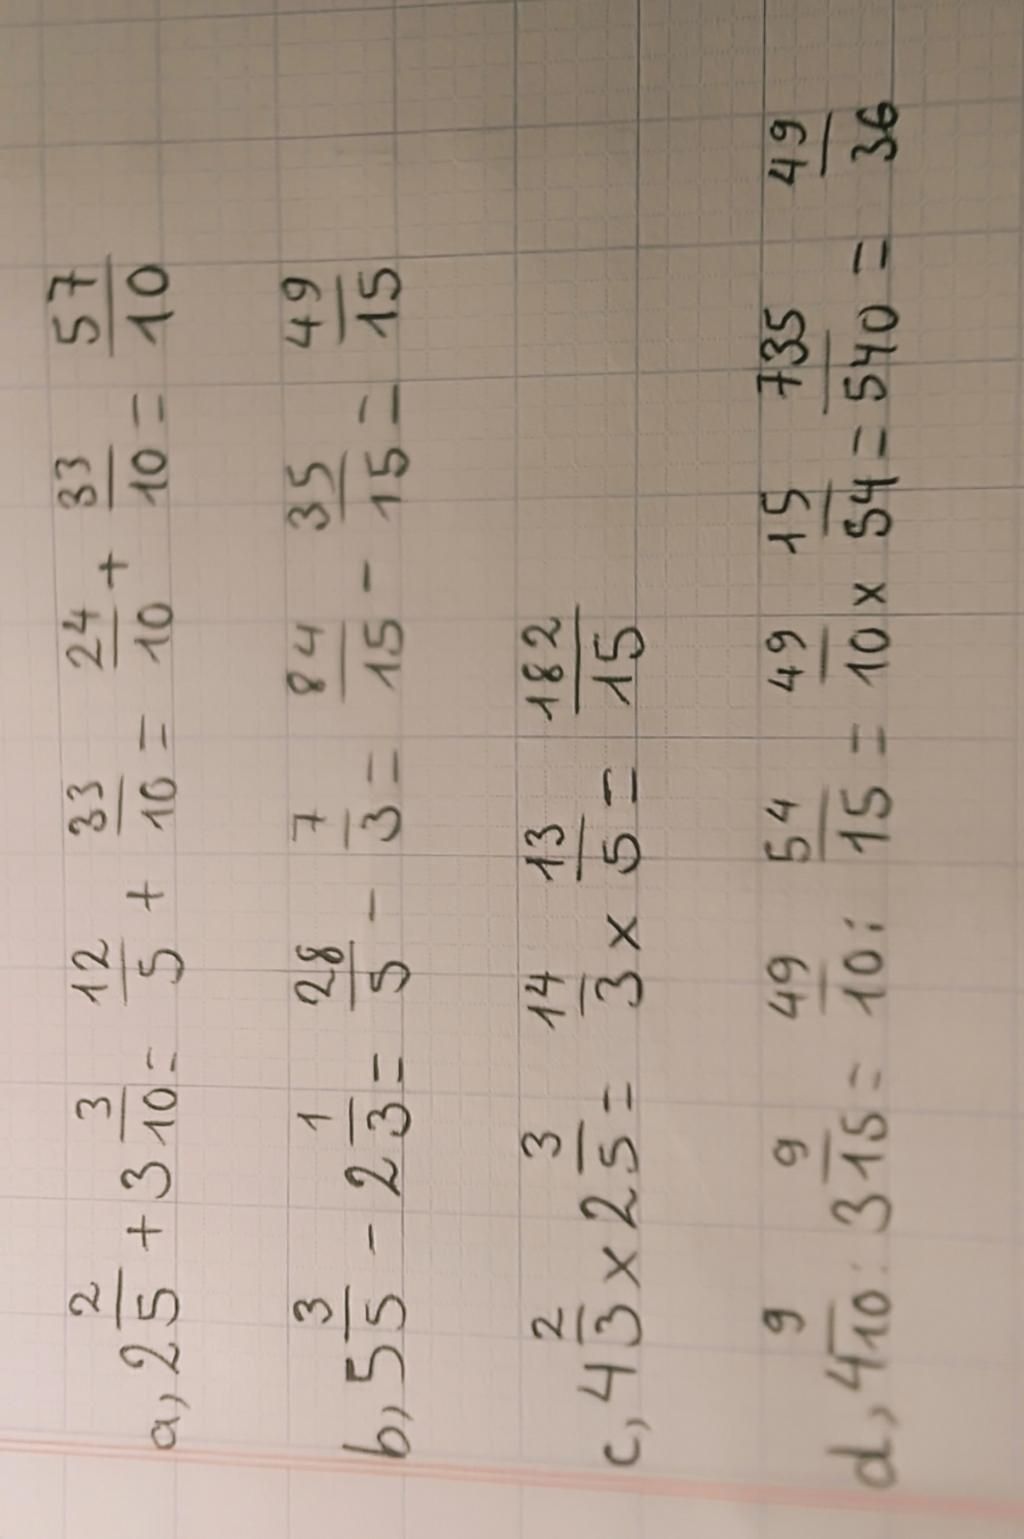 a, 2 2/5 + 3 3/10 = 12/5 + 33/10 = 24/10 + 33/10 = 57/10
b, 5 3/5 - 2 1/3 = 28/5 - 7/3 = 84/15 - 35/15 = 49/15
c, 4 2/3 x 2 3/5 = 14/3 x 13/5 = 182/15
d, 4 9/10 : 3 9/15 = 49/10 : 54/15 = 49/10 x 15/54 = 735/540 = 49/36